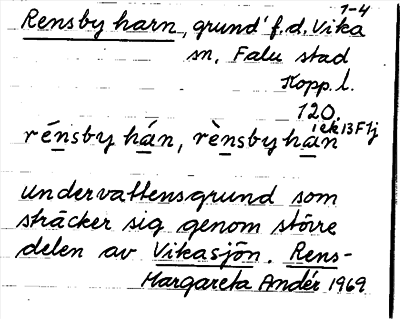 1-4
Rensby harn, grund f.d. Vika
sn, Falu stad
Kopp. l.
120.
i ek 13F1j
rénsby hán, rènsby hàn
undervattensgrund som
sträcker sig genom större
delen av Vikasjön. Rens-
Margareta Andér 1969